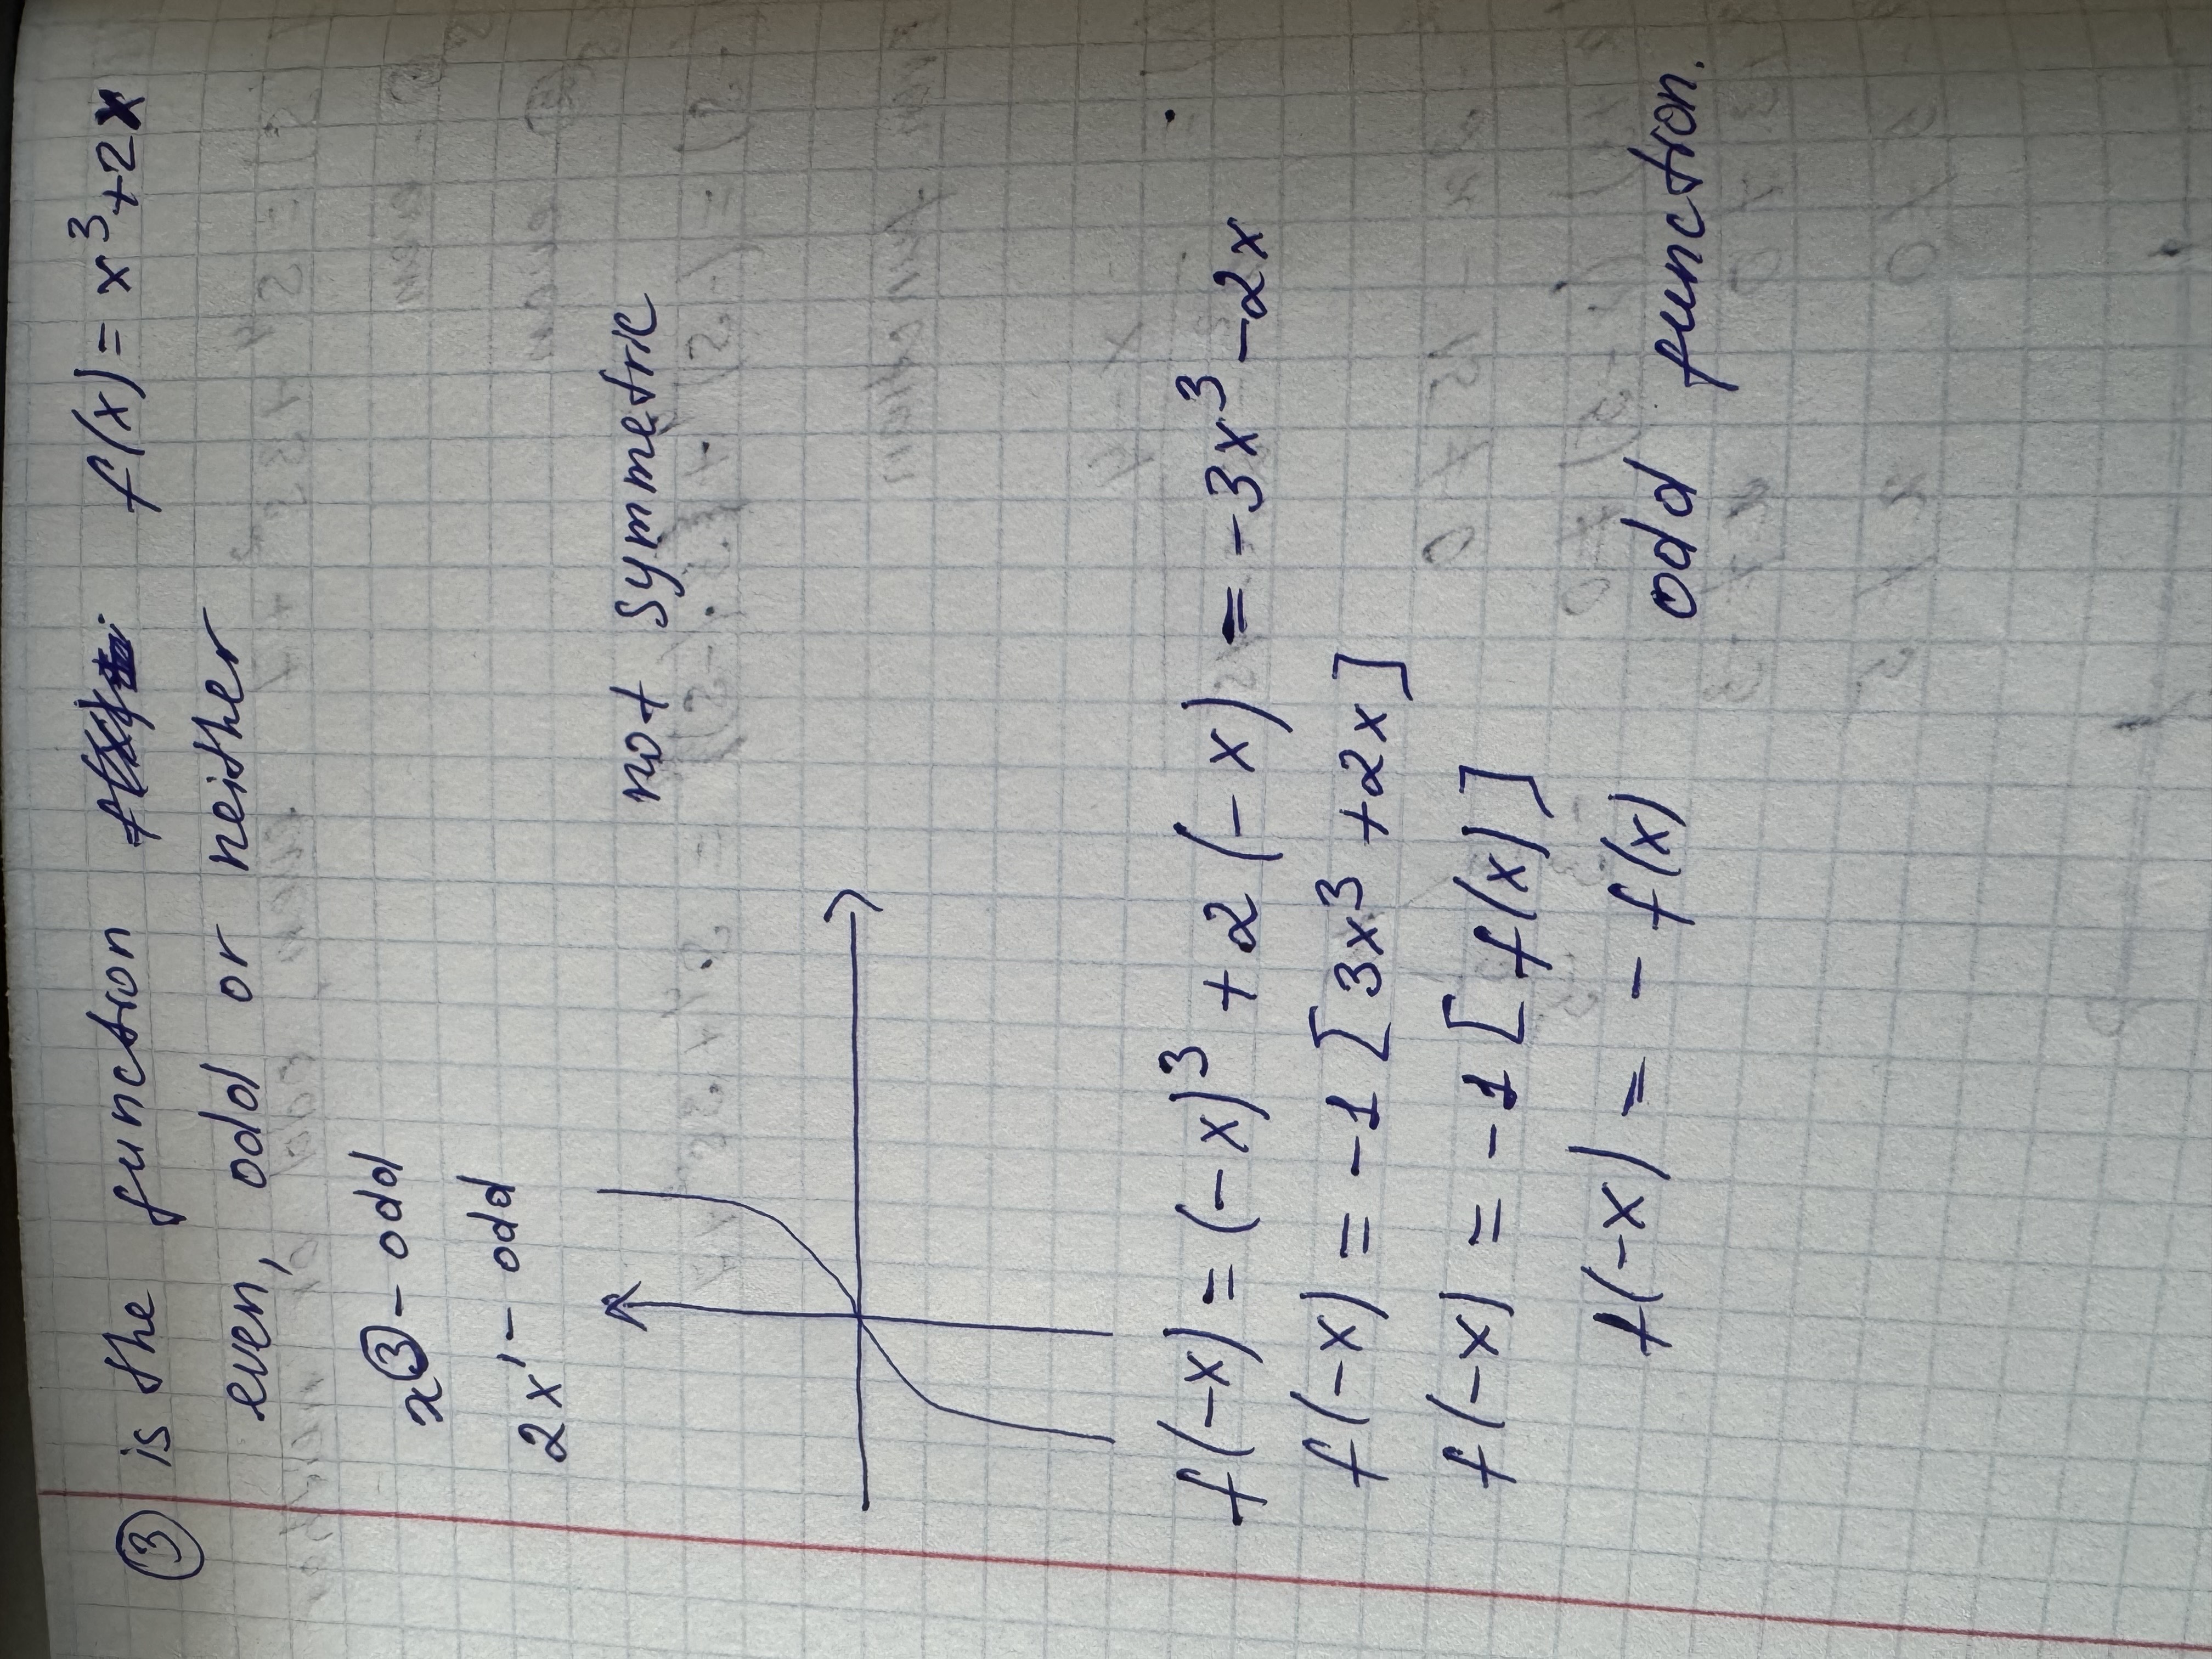 ③ is the function f(x) = x³+2x
even, odd or neither
x³ - odd
2x¹ - odd
not symmetric
f(-x) = (-x)³ + 2(-x) = -3x³ - 2x
f(-x) = -1 [3x³ + 2x]
f(-x) = -1 [f(x)]
f(-x) = - f(x) odd function.